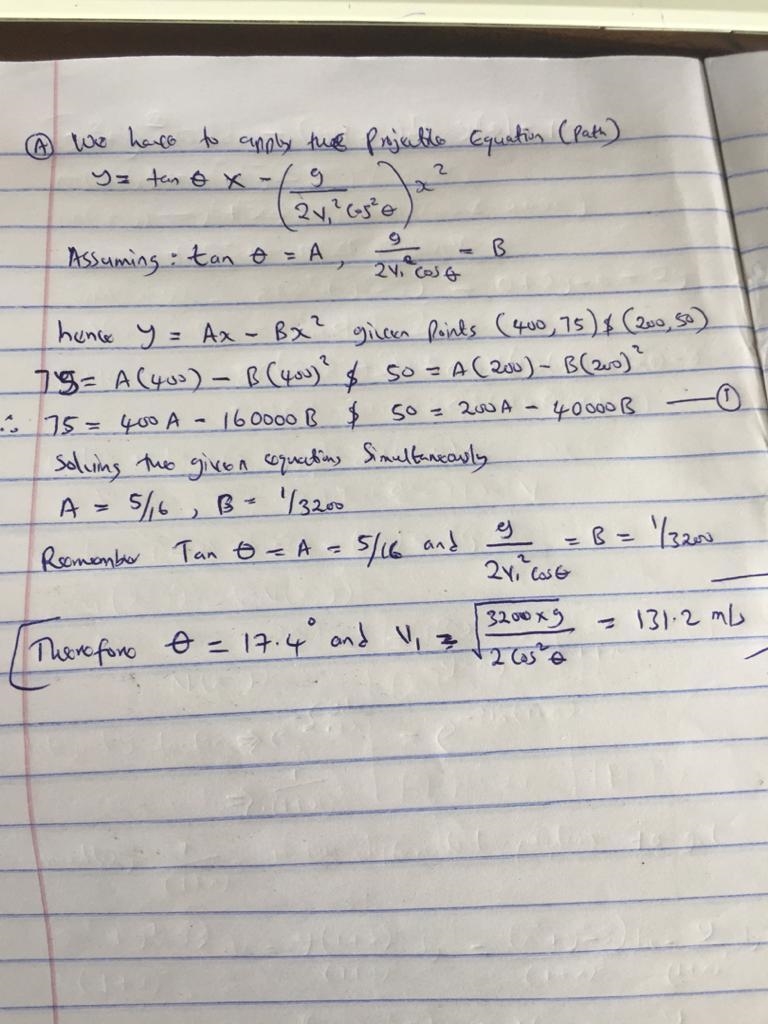 Ⓐ We have to apply the Projectile Equation (Path)
y = tan θ x - (g / 2v₁² cos² θ) x²
Assuming : tan θ = A , g / 2v₁² cos θ = B
hence y = Ax - Bx² given Points (400, 75) $ (200, 50)
75 = A(400) - B(400)² $ 50 = A(200) - B(200)²
∴ 75 = 400A - 160000B $ 50 = 200A - 40000B —— ①
Solving two given equations Simultaneously
A = 5/16 , B = 1/3200
Remember Tan θ = A = 5/16 and g / 2v₁² cos θ = B = 1/3200
Therefore θ = 17.4° and V₁ = √(3200 x g / 2 cos² θ) = 131.2 m/s